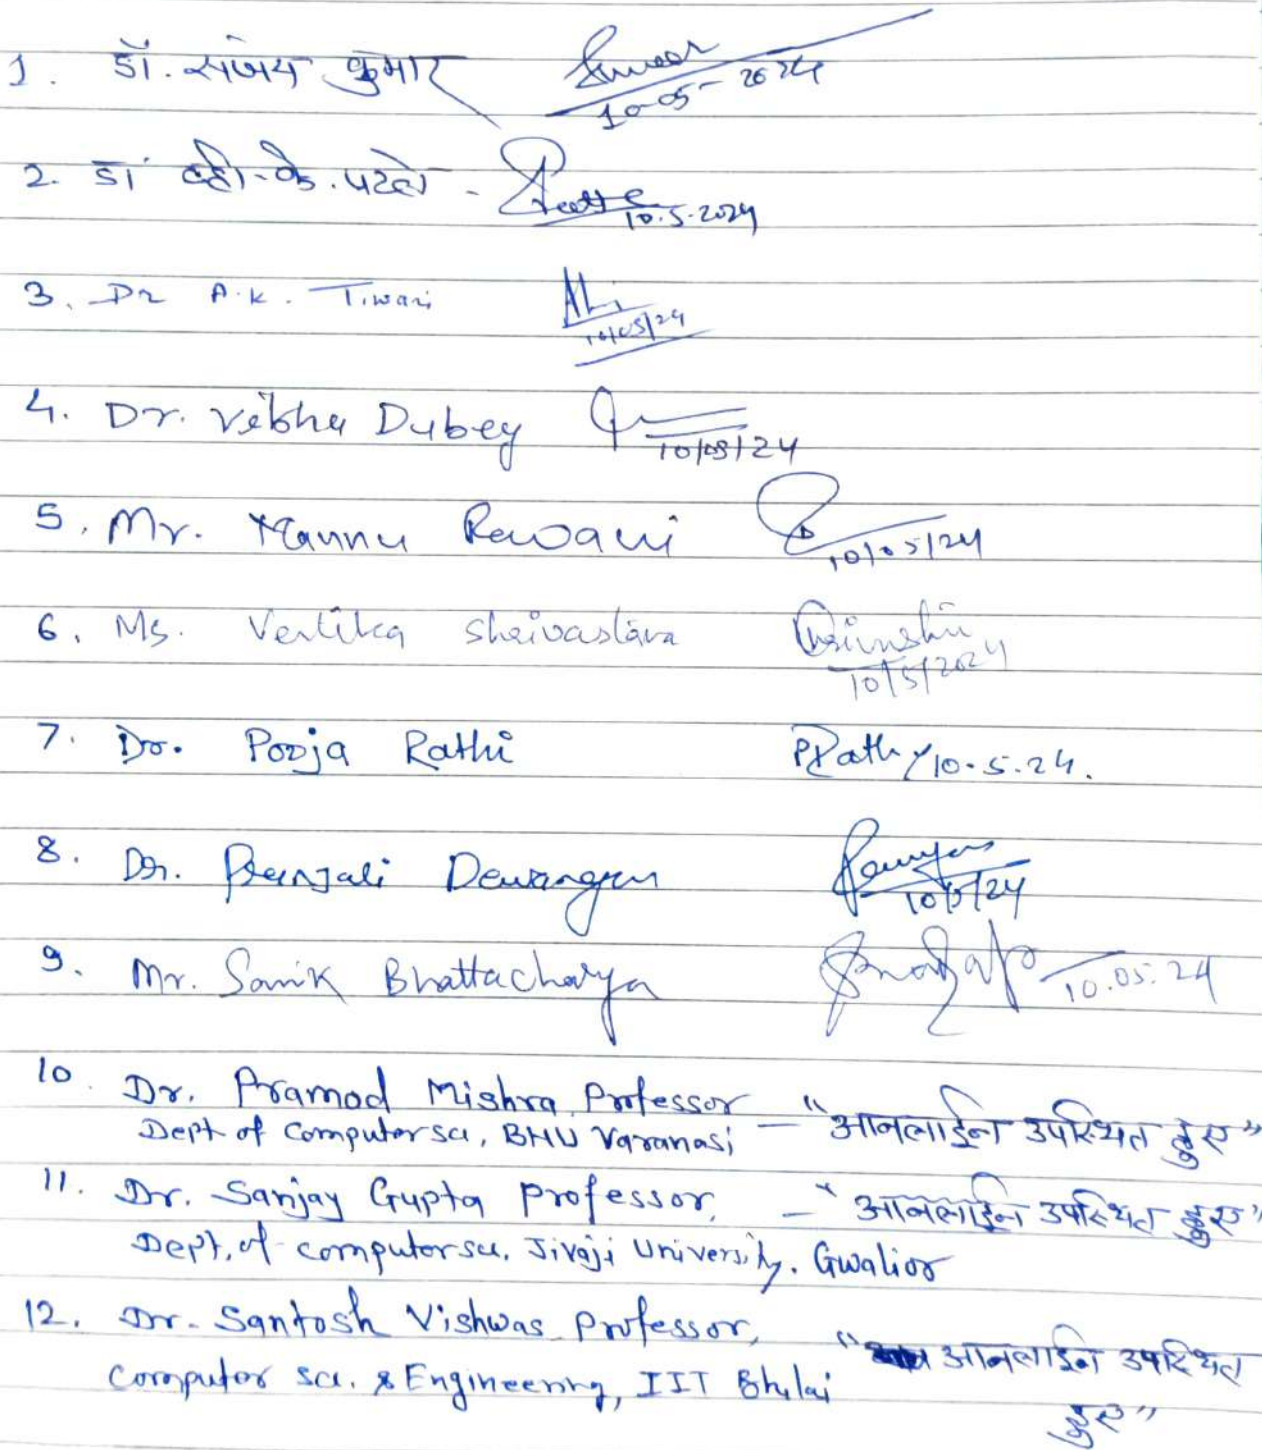 1. डॉ. संजय कुमार
10-05-2024
2. डां व्ही.के. पटले -
10.5.2024
3. Dr A.K. Tiwari
10/05/24
4. Dr. Vibha Dubey
10/05/24
5. Mr. Mannu Rawani
10/05/24
6. Ms. Vertika Shrivastava
10/5/2024
7. Dr. Pooja Rathi PRathi 10.5.24.
8. Dr. Pranjali Dewangan
10/5/24
9. Mr. Samik Bhattacharya
10.05.24
10. Dr. Pramod Mishra Professor – "आनलाईन उपस्थित हुए"
Dept of Computer sci, BHU Varanasi
11. Dr. Sanjay Gupta Professor, – "आनलाईन उपस्थित हुए"
Dept. of Computer sci. Jivaji University. Gwalior
12. Dr. Santosh Vishwas Professor,
Computer sci. & Engineering, IIT Bhilai "आनलाईन उपस्थित
हुए"